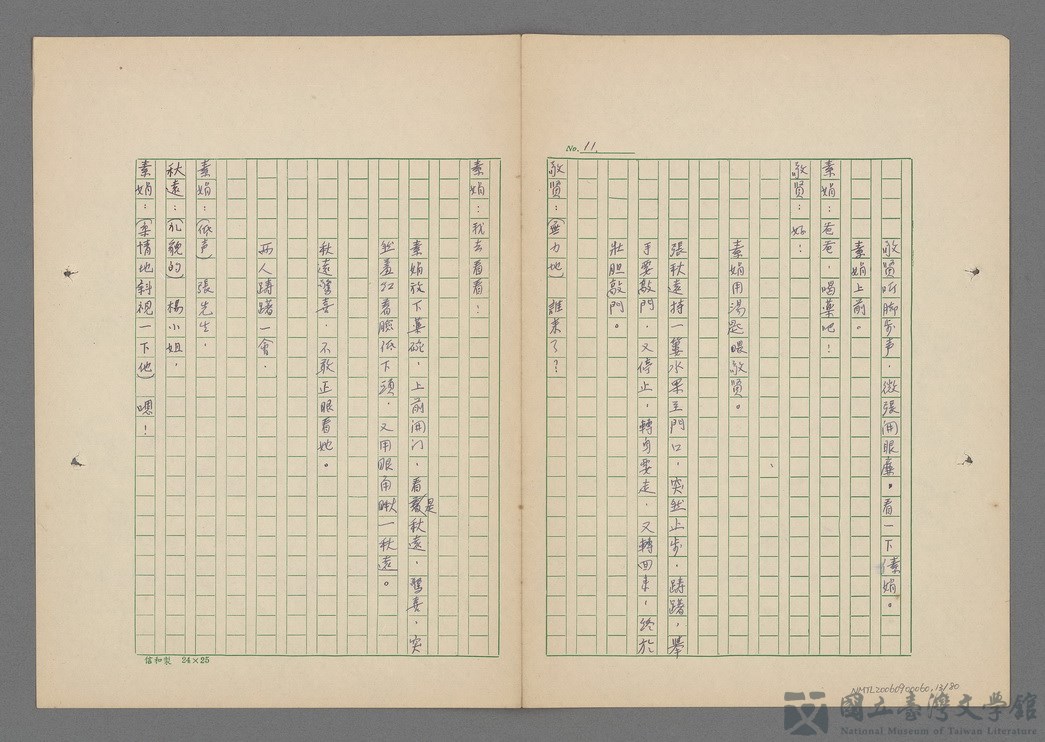 No. 11.
敬賢听脚步声，微張開眼廉。看一下素娟。
素娟上前。
素娟：爸爸，喝藥吧！
敬賢：好：
素娟用湯匙喂敬賢。
張秋遠持一簍水果至門口，突然止步，躊躇，舉
手要敲門，又停止，轉身要走，又轉回來，終於
壯胆敲門。
敬賢：(無力地) 誰來了？
素娟：我去看看：
素娟放下藥碗，上前開门，看是秋遠，驚喜，突
然羞红着臉低下頭，又用眼角瞅一秋遠。
秋遠驚喜，不敢正眼看她。
兩人躊躇一會，
素娟：(低声) 張先生，
秋遠：(礼貌的) 楊小姐，
素娟：(柔情地斜視一下他) 嗯！
信和製 24×25
NMTL20060900060.13/80
國立臺灣文學館
National Museum of Taiwan Literature